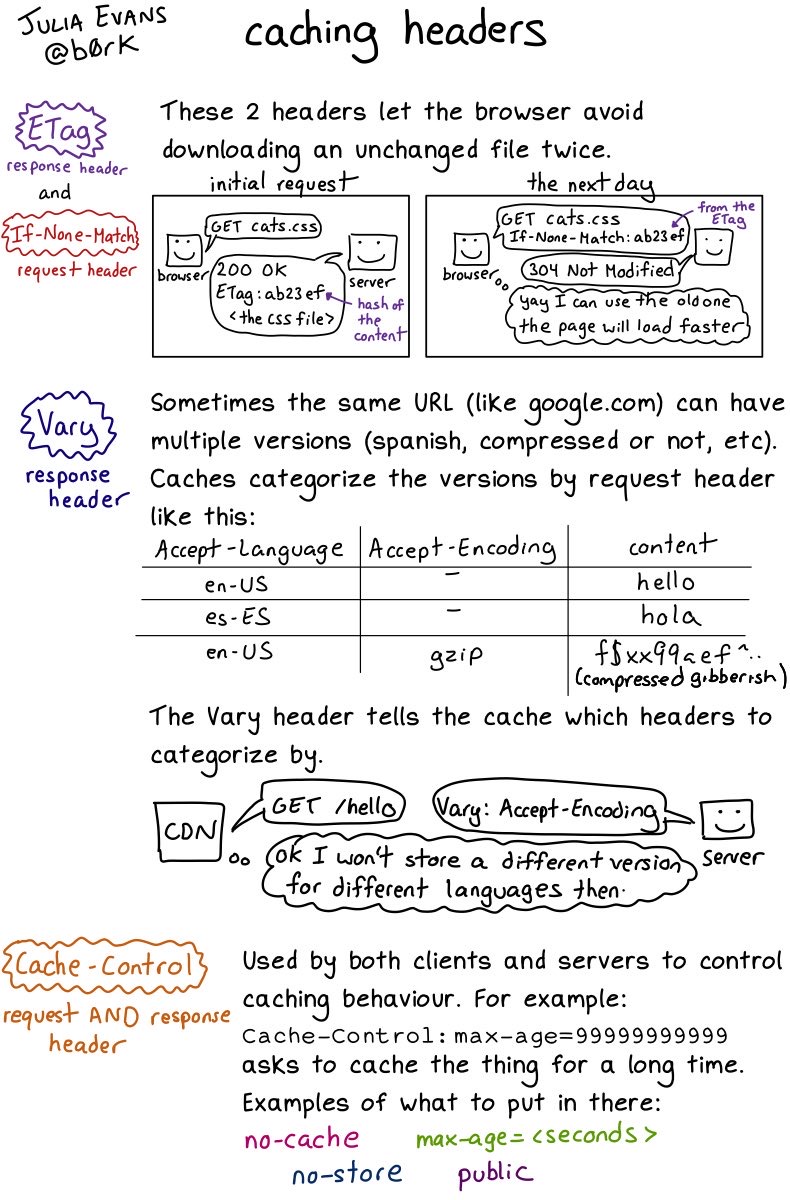 JULIA EVANS
@b0rk
caching headers
ETag
response header
and
If-None-Match
request header
These 2 headers let the browser avoid
downloading an unchanged file twice.
initial request
GET cats.css
browser
200 OK
ETag:ab23ef
<the CSS file>
server
hash of
the
content
the next day
GET cats.css
If-None-Match:ab23ef
from the
ETag
browser
304 Not Modified
yay I can use the old one
the page will load faster
Vary
response
header
Sometimes the same URL (like google.com) can have
multiple versions (spanish, compressed or not, etc).
Caches categorize the versions by request header
like this:
Accept-Language Accept-Encoding content
en-US – hello
es-ES – hola
en-US gzip f$xx99aef^..
(compressed gibberish)
The Vary header tells the cache which headers to
categorize by.
CDN
GET /hello
Vary: Accept-Encoding
server
ok I won't store a different version
for different languages then.
Cache-Control
request AND response
header
Used by both clients and servers to control
caching behaviour. For example:
Cache-Control: max-age=99999999999
asks to cache the thing for a long time.
Examples of what to put in there:
no-cache max-age=<seconds>
no-store public